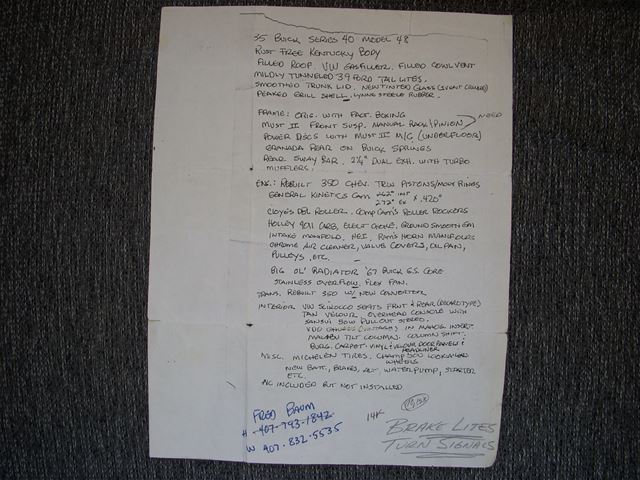 35 BUICK SERIES 40 MODEL 48
RUST FREE KENTUCKY BODY
FILLED ROOF. VW GASFILLER. FILLED COWL VENT
MILDLY TUNNELED 39 FORD TAIL LITES.
SMOOTHED TRUNK LID. NEW TINTED GLASS (1 VENT CRACKED)
PEAKED GRILL SHELL. LYNNE STEELE RUBBER.
FRAME: ORIG. WITH FACT. BOXING
MUST II FRONT SUSP. MANUAL RACK/PINION NEED
POWER DISCS WITH MUST II M/C (UNDERFLOOR)
GRANADA REAR ON BUICK SPRINGS
REAR SWAY BAR. 2 1/4" DUAL EXH. WITH TURBO
MUFFLERS.
ENG.: REBUILT 350 CHEV. TRW PISTONS/MOLY RINGS
GENERAL KINETICS CAM 262° INT 272° EX & .420"
CLOYES DBL ROLLER. COMP CAMS ROLLER ROCKERS
HOLLEY 4011 CARB, ELECT CHOKE, GROUND SMOOTH EM
INTAKE MANIFOLD, HEI, RAM'S HORN MANIFOLDS
CHROME AIR CLEANER, VALVE COVERS, OIL PAN,
PULLEYS, ETC.
BIG OL' RADIATOR '67 BUICK G.S. CORE
STAINLESS OVERFLOW, FLEX FAN.
TRANS. REBUILT 350 W/ NEW CONVERTOR
INTERIOR VW SCIROCCO SEATS FRNT & REAR (RECARO TYPE)
TAN VELOUR. OVERHEAD CONSOLE WITH
SANSUI 50W PULLOUT STEREO.
VDO GAUGES (VINTAGE) IN MAHOG. INSERT.
MALIBU TILT COLUMN. COLUMN SHIFT.
BURG. CARPET. VINYL & VELOUR DOOR PANELS & HEADLINER
MISC. MICHELEN TIRES, CHAMP 500 LOOKALIKE WHEELS
NEW BATT., BRAKES, ALT, WATERPUMP, STARTER
ETC.
A/C INCLUDED BUT NOT INSTALLED
FRED BAUM
H - 407-793-1842
W 407-832-5535
14K
BRAKE LITES
TURN SIGNALS